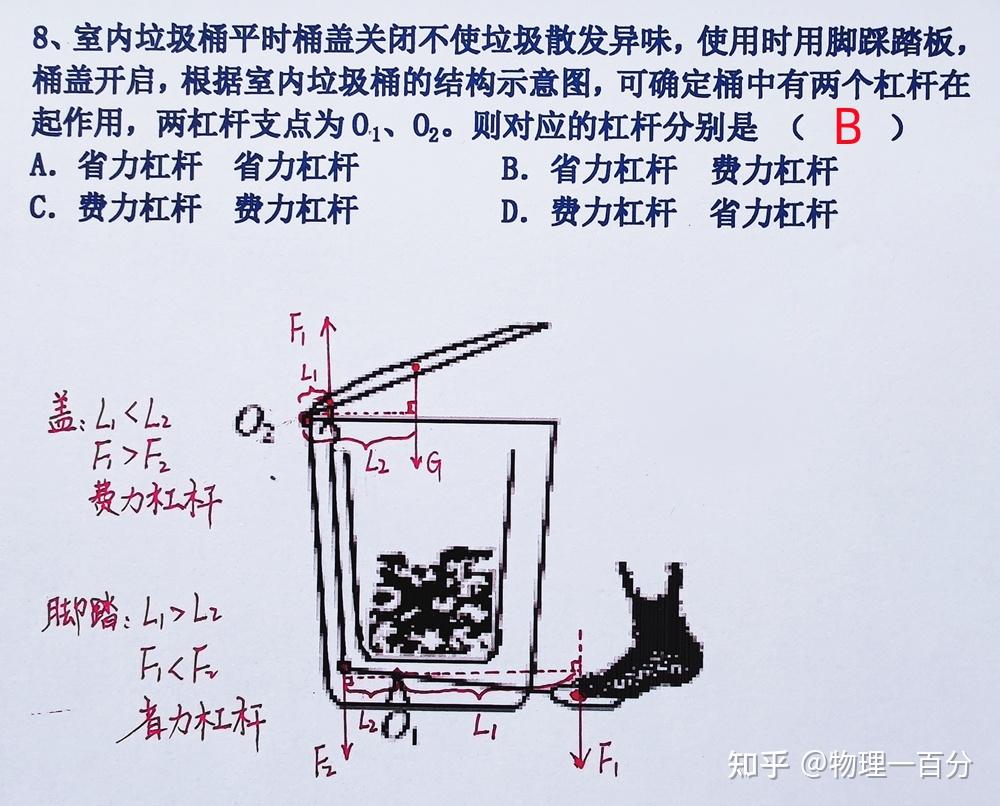 8、室内垃圾桶平时桶盖关闭不使垃圾散发异味，使用时用脚踩踏板，
桶盖开启，根据室内垃圾桶的结构示意图，可确定桶中有两个杠杆在
起作用，两杠杆支点为O₁、O₂。则对应的杠杆分别是 （ B ）
A. 省力杠杆 省力杠杆 B. 省力杠杆 费力杠杆
C. 费力杠杆 费力杠杆 D. 费力杠杆 省力杠杆
F₁
L₁
O₂
L₂
G
盖：L₁<L₂
F₁>F₂
费力杠杆
脚踏：L₁>L₂
F₁<F₂
省力杠杆
L₂ O₁ L₁
F₂ F₁
知乎 @物理一百分